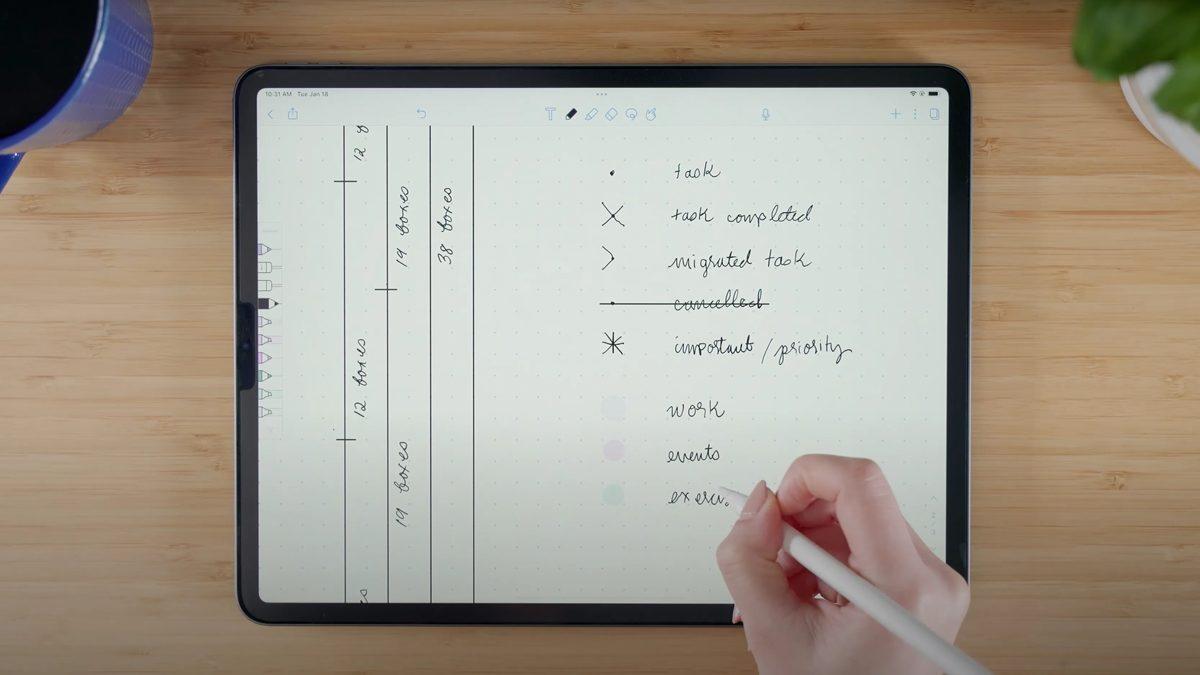 10:31 AM Tue Jan 18
12
19 boxes
38 boxes
12 boxes
19 boxes
task
task completed
migrated task
cancelled
important / priority
work
events
exerci